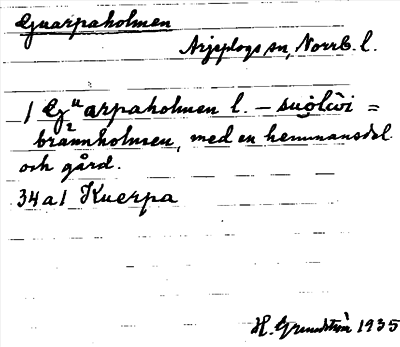 Guarpaholmen
Arjeplogs sn, Norrb. l.
1 Guarpaholmen l. – suǫlùi =
brännholmen, med en hemmansdel
och gård.
34a1 Kuerpa
H. Grundström 1935